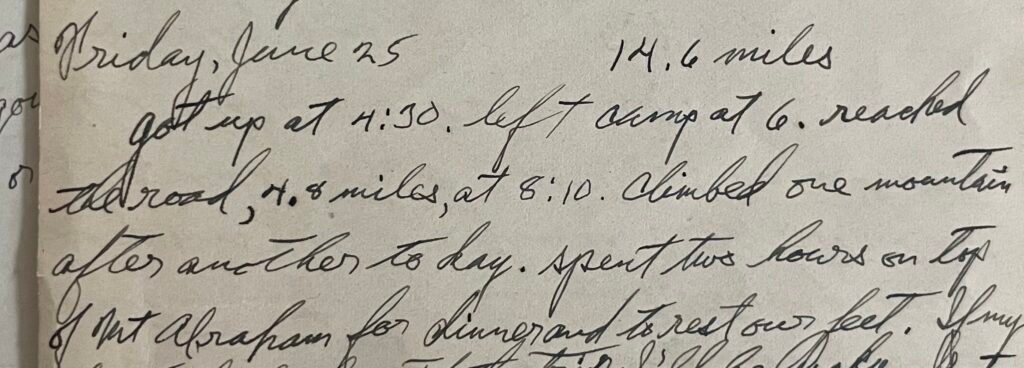 as
Friday, June 25 14.6 miles
got up at 4:30. left camp at 6. reached
the road, 4.8 miles, at 8:10. climbed one mountain
after another to day. spent two hours on top
of Mt Abraham for dinner and to rest our feet. If my